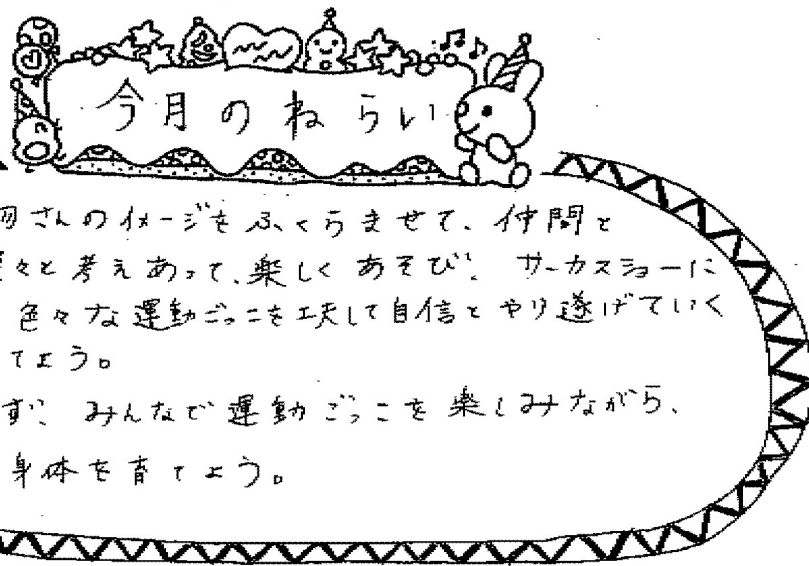 今月のねらい
さんのイメージをふくらませて、仲間と
々と考えあって、楽しくあそび、サーカスショーに
色々な運動ごっこを工夫して自信とやり遂げていく
てよう。
ず、みんなで運動ごっこを楽しみながら、
身体を育てよう。